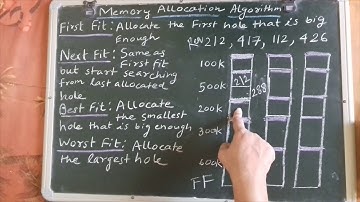 Memory Allocation Algorithm
First Fit: Allocate the First hole that is big
Enough
Next Fit: Same as
first fit
but start searching
from last allocated
hole
Best Fit: Allocate
the smallest
hole that is big enough
Worst Fit: Allocate
the largest hole
212, 417, 112, 426
100k
500k
212
288
200k
300k
600k
FF